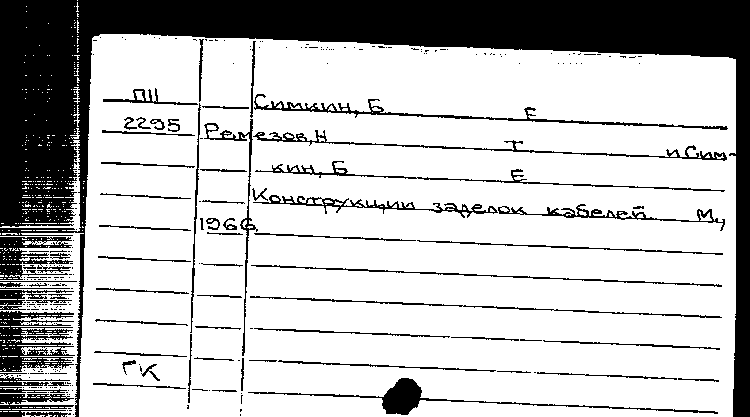 П11 Симкин, Б Е
2295 Ремезов, Н Т и Сим-
кин, Б Е
Конструкции заделок кабелей М.,
1966.
ГК